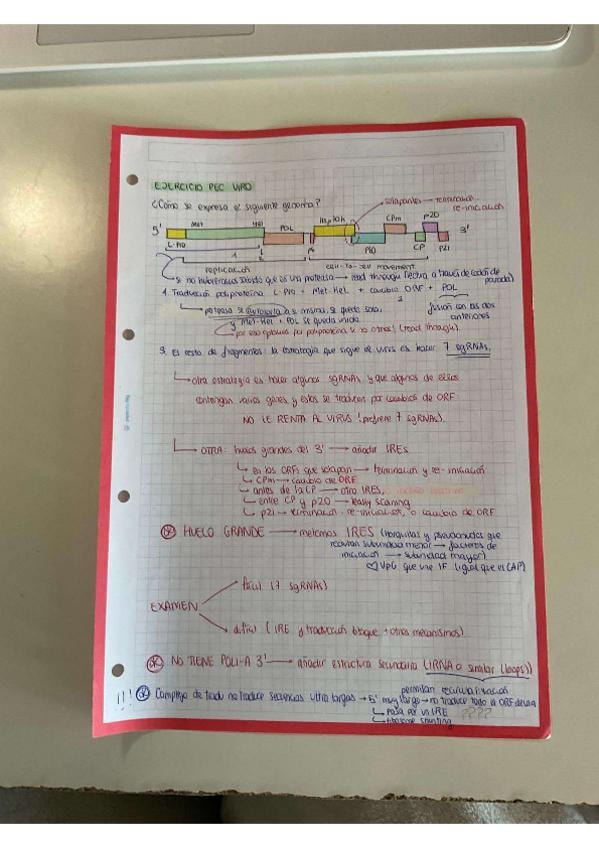 EJERCICIO PEC VIRO
¿Cómo se expresa el siguiente genoma?
solapantes → terminación-
re-iniciación
5' Met Hel POL Hsp70h CPm p20 3'
L-Pro p6 p60 CP p21
1 2
replicación cell-to-cell movement
si no hubiéramos sabido que es una proteasa → read through (lectura a través de codón de parada)
1. Traducción poliproteína L-Pro + Met-Hel + cambio ORF + POL
2 fusión con las dos anteriores
proteasa se autocorta a sí misma, se queda sola,
y Met-Hel + POL se queda unida
por eso optamos por poliproteína si no otros! (read through).
2. El resto de fragmentos: la estrategia que sigue el virus es hacer 7 sgRNAs.
otra estrategia es hacer algunos sgRNAs y que algunos de ellos
contengan varios genes, y estos se traducen por cambios de ORF
NO LE RENTA AL VIRUS (prefiere 7 sgRNAs).
OTRA: huecos grandes del 3' → añadir IRES
en los ORFs que solapan → terminación y re-iniciación
CPm → cambio de ORF
antes de la CP → otro IRES,
entre CP y p20 → leaky scanning
p21 → terminación-re-iniciación, o cambio de ORF
HUECO GRANDE → metemos IRES (horquillas y pseudonudos que
reclutan subunidad menor → factores de
iniciación → subunidad mayor)
VPG que une IF (igual que el CAP)
fácil (7 sgRNAs)
EXAMEN
difícil (IRE y traducción bloque + otros mecanismos)
NO TIENE POLI-A 3' → añadir estructura secundaria (tRNA o similar (loops))
permitan recircularización
!!! Complejo de tradu no traduce secuencias ultra largas → 5' muy largo → no traduce todo el ORF
pasa por un IRE ????
ribosome shunting